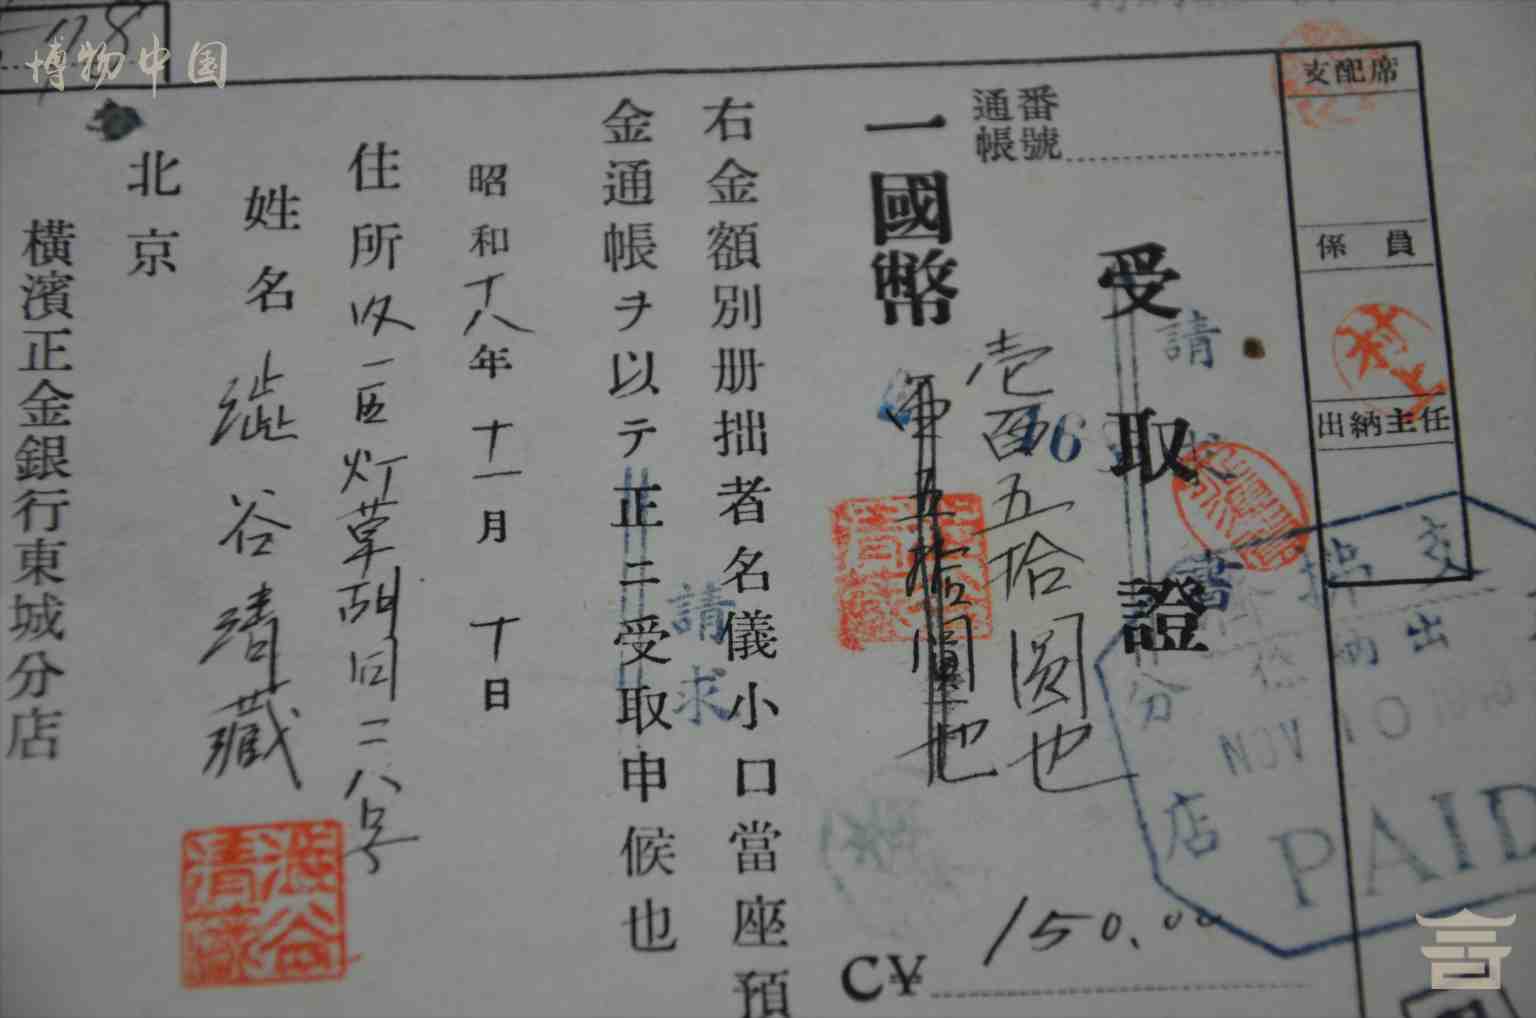 博物中国
支配席
係員
出納主任
番號
通帳
受取證
請求
一國幣
壱百五拾圓也
五拾圓也
C¥ 150.00
右金額別册拙者名儀小口當座預
金通帳ヲ以テ正ニ受取申候也
請求
昭和十八年十一月十日
住所 区灯草胡同二八号
姓名 澁谷清藏
澁谷清藏
北京
横濱正金銀行東城分店
支
出納
NOV 10
PAID
分店
村上